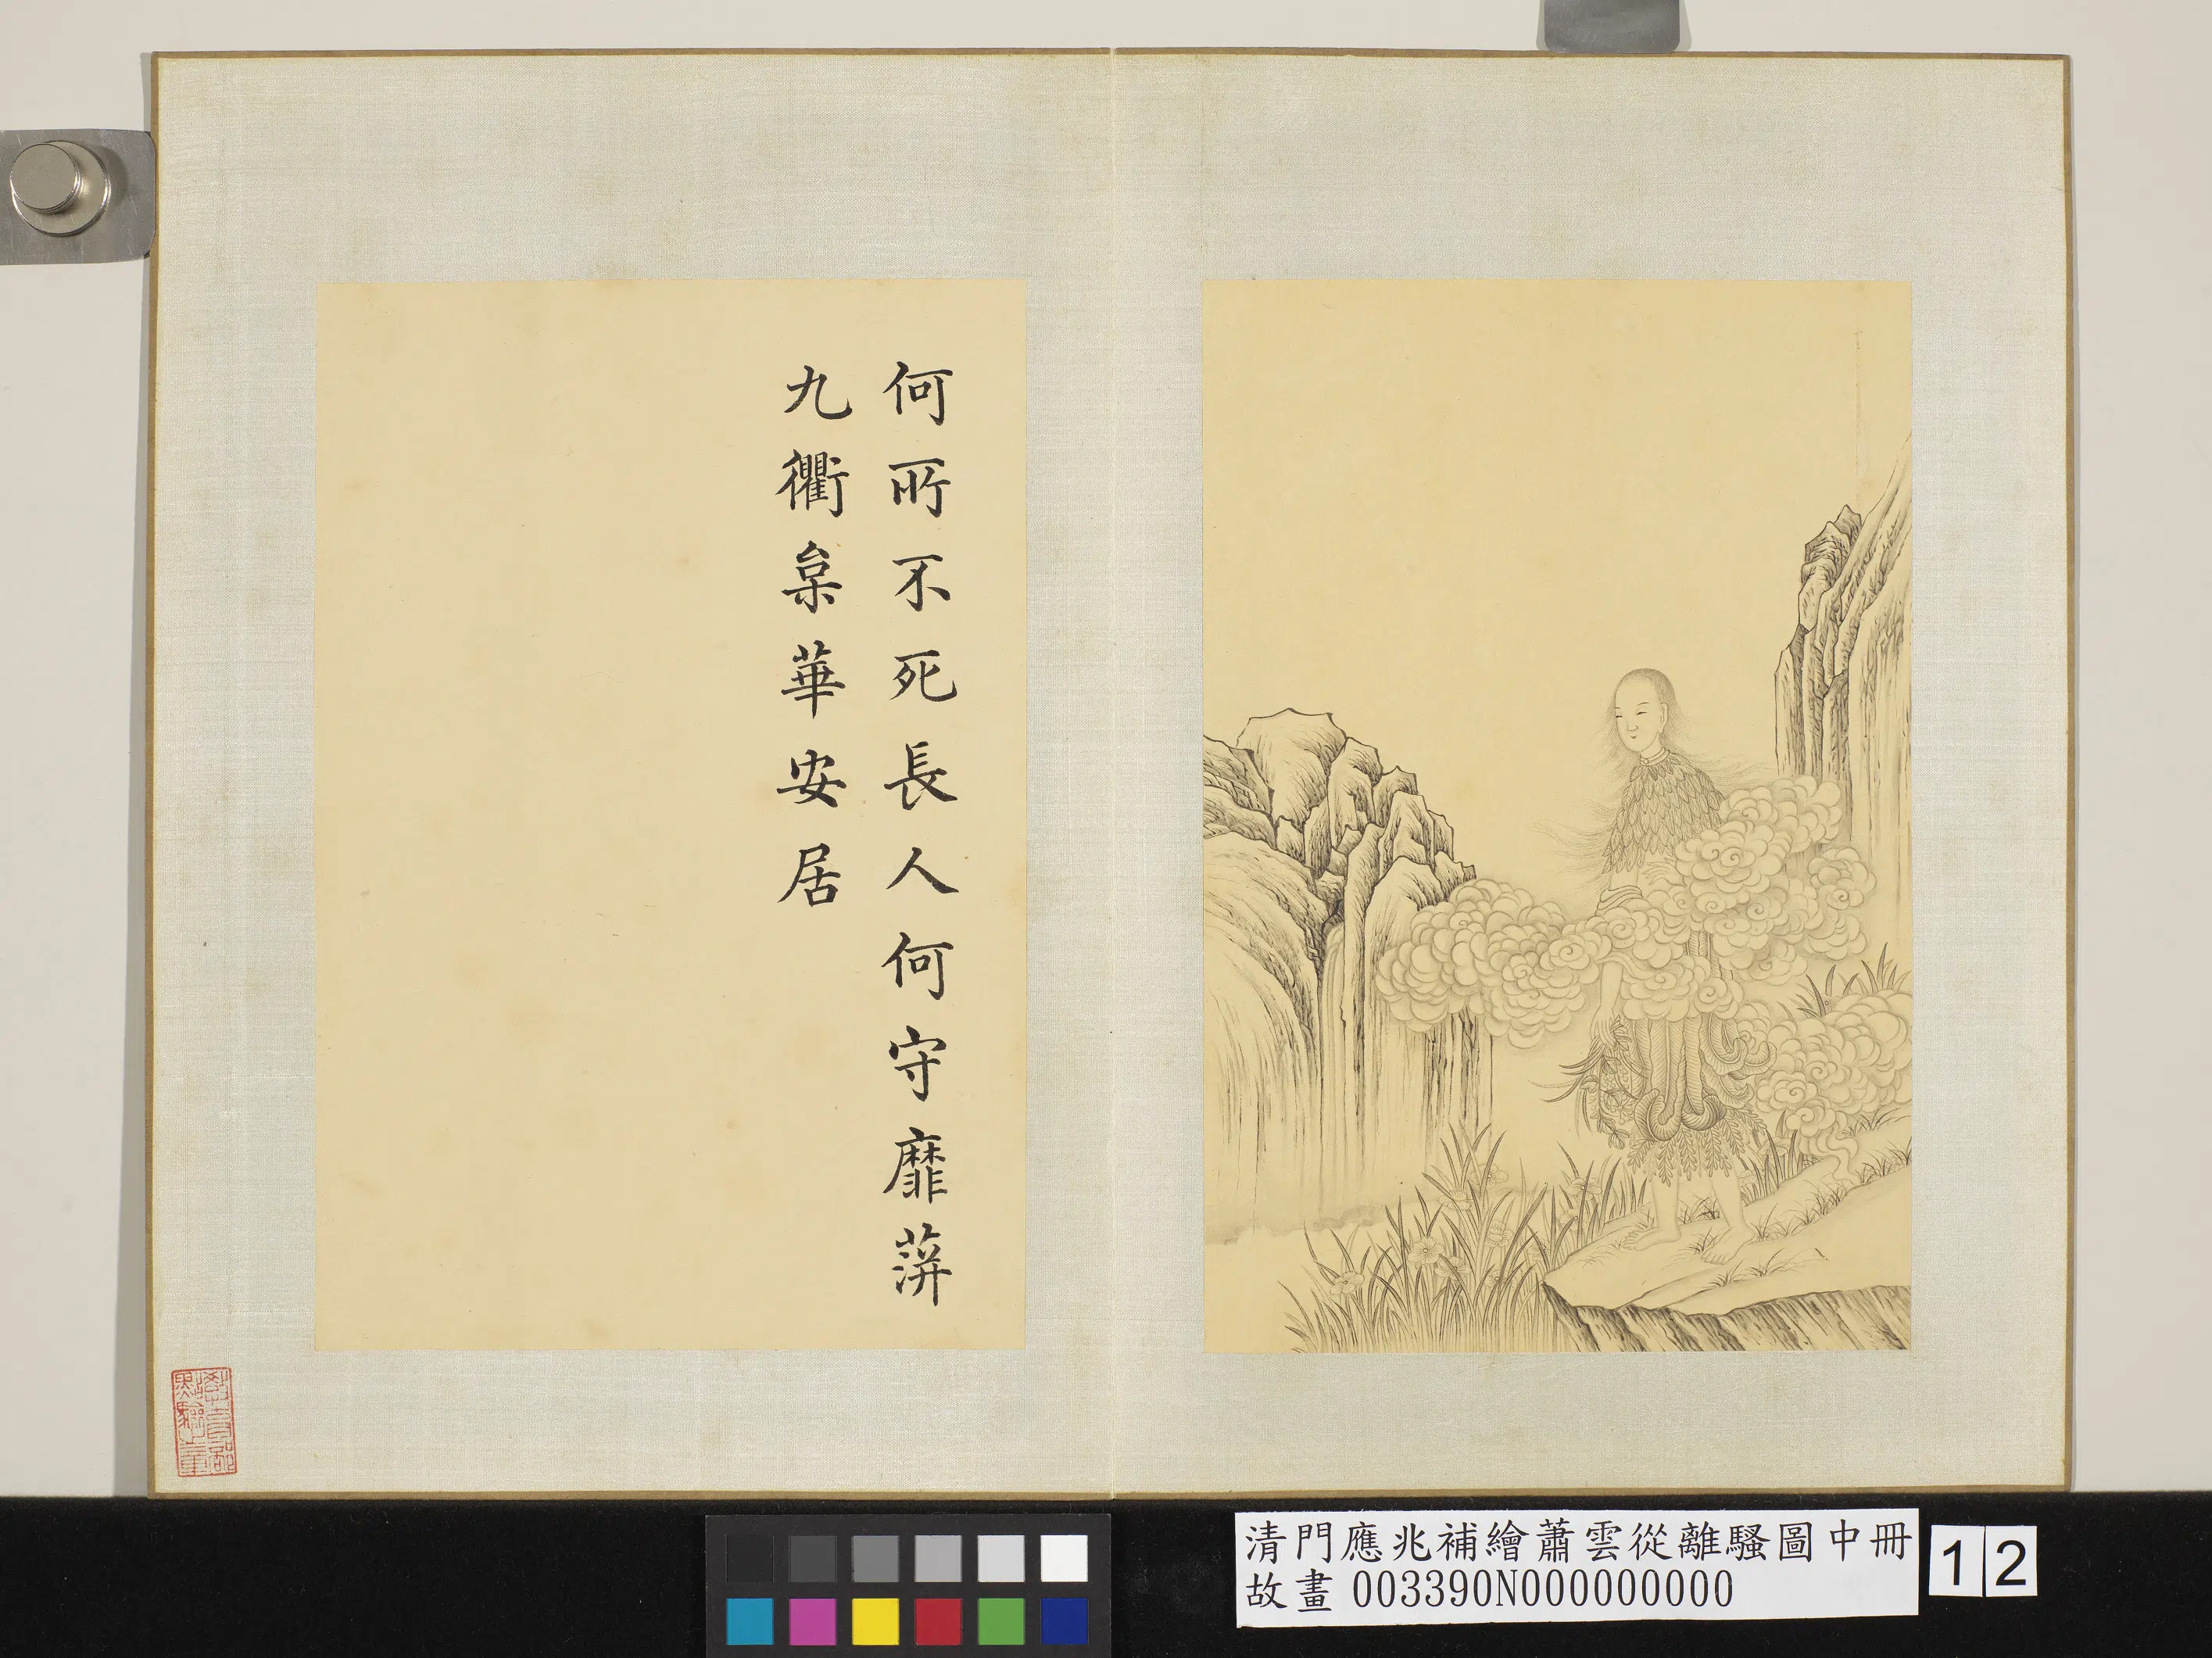 何所不死長人何守靡蓱
九衢枲華安居
清門應兆補繪蕭雲從離騷圖中冊
故畫 003390N000000000
12